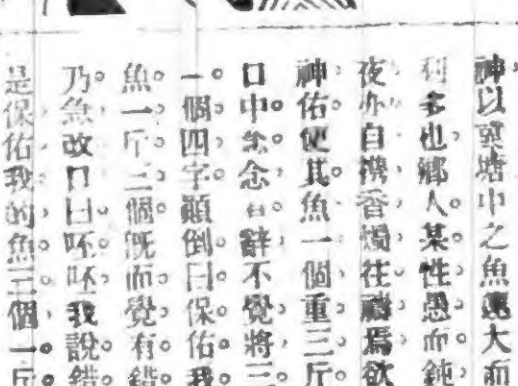 神以冀塘中之魚遂大而
利多也鄉人某性愚而鈍
夜亦自携香燭往禱焉欲
神佑使其魚一個重三斤
口中念念有辭不覺將三
一個四字顛倒曰保佑我
魚一斤三個旣而覺有錯
乃急改口曰呸呸我說錯
是保佑我的魚三個一斤